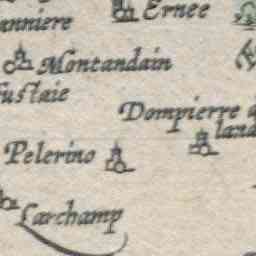 Ernee
anniere
Montandain
fustaie
Dompierre d
land
Pelerino
Larchamp